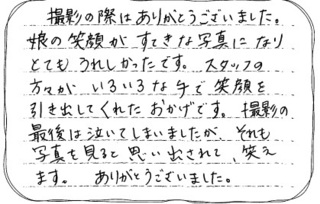 撮影の際はありがとうございました。
娘の笑顔がすてきな写真になり
とてもうれしかったです。スタッフの
方々がいろいろな手で笑顔を
引き出してくれたおかげです。撮影の
最後は泣いてしまいましたが、それも
写真を見ると思い出されて、笑え
ます。 ありがとうございました。